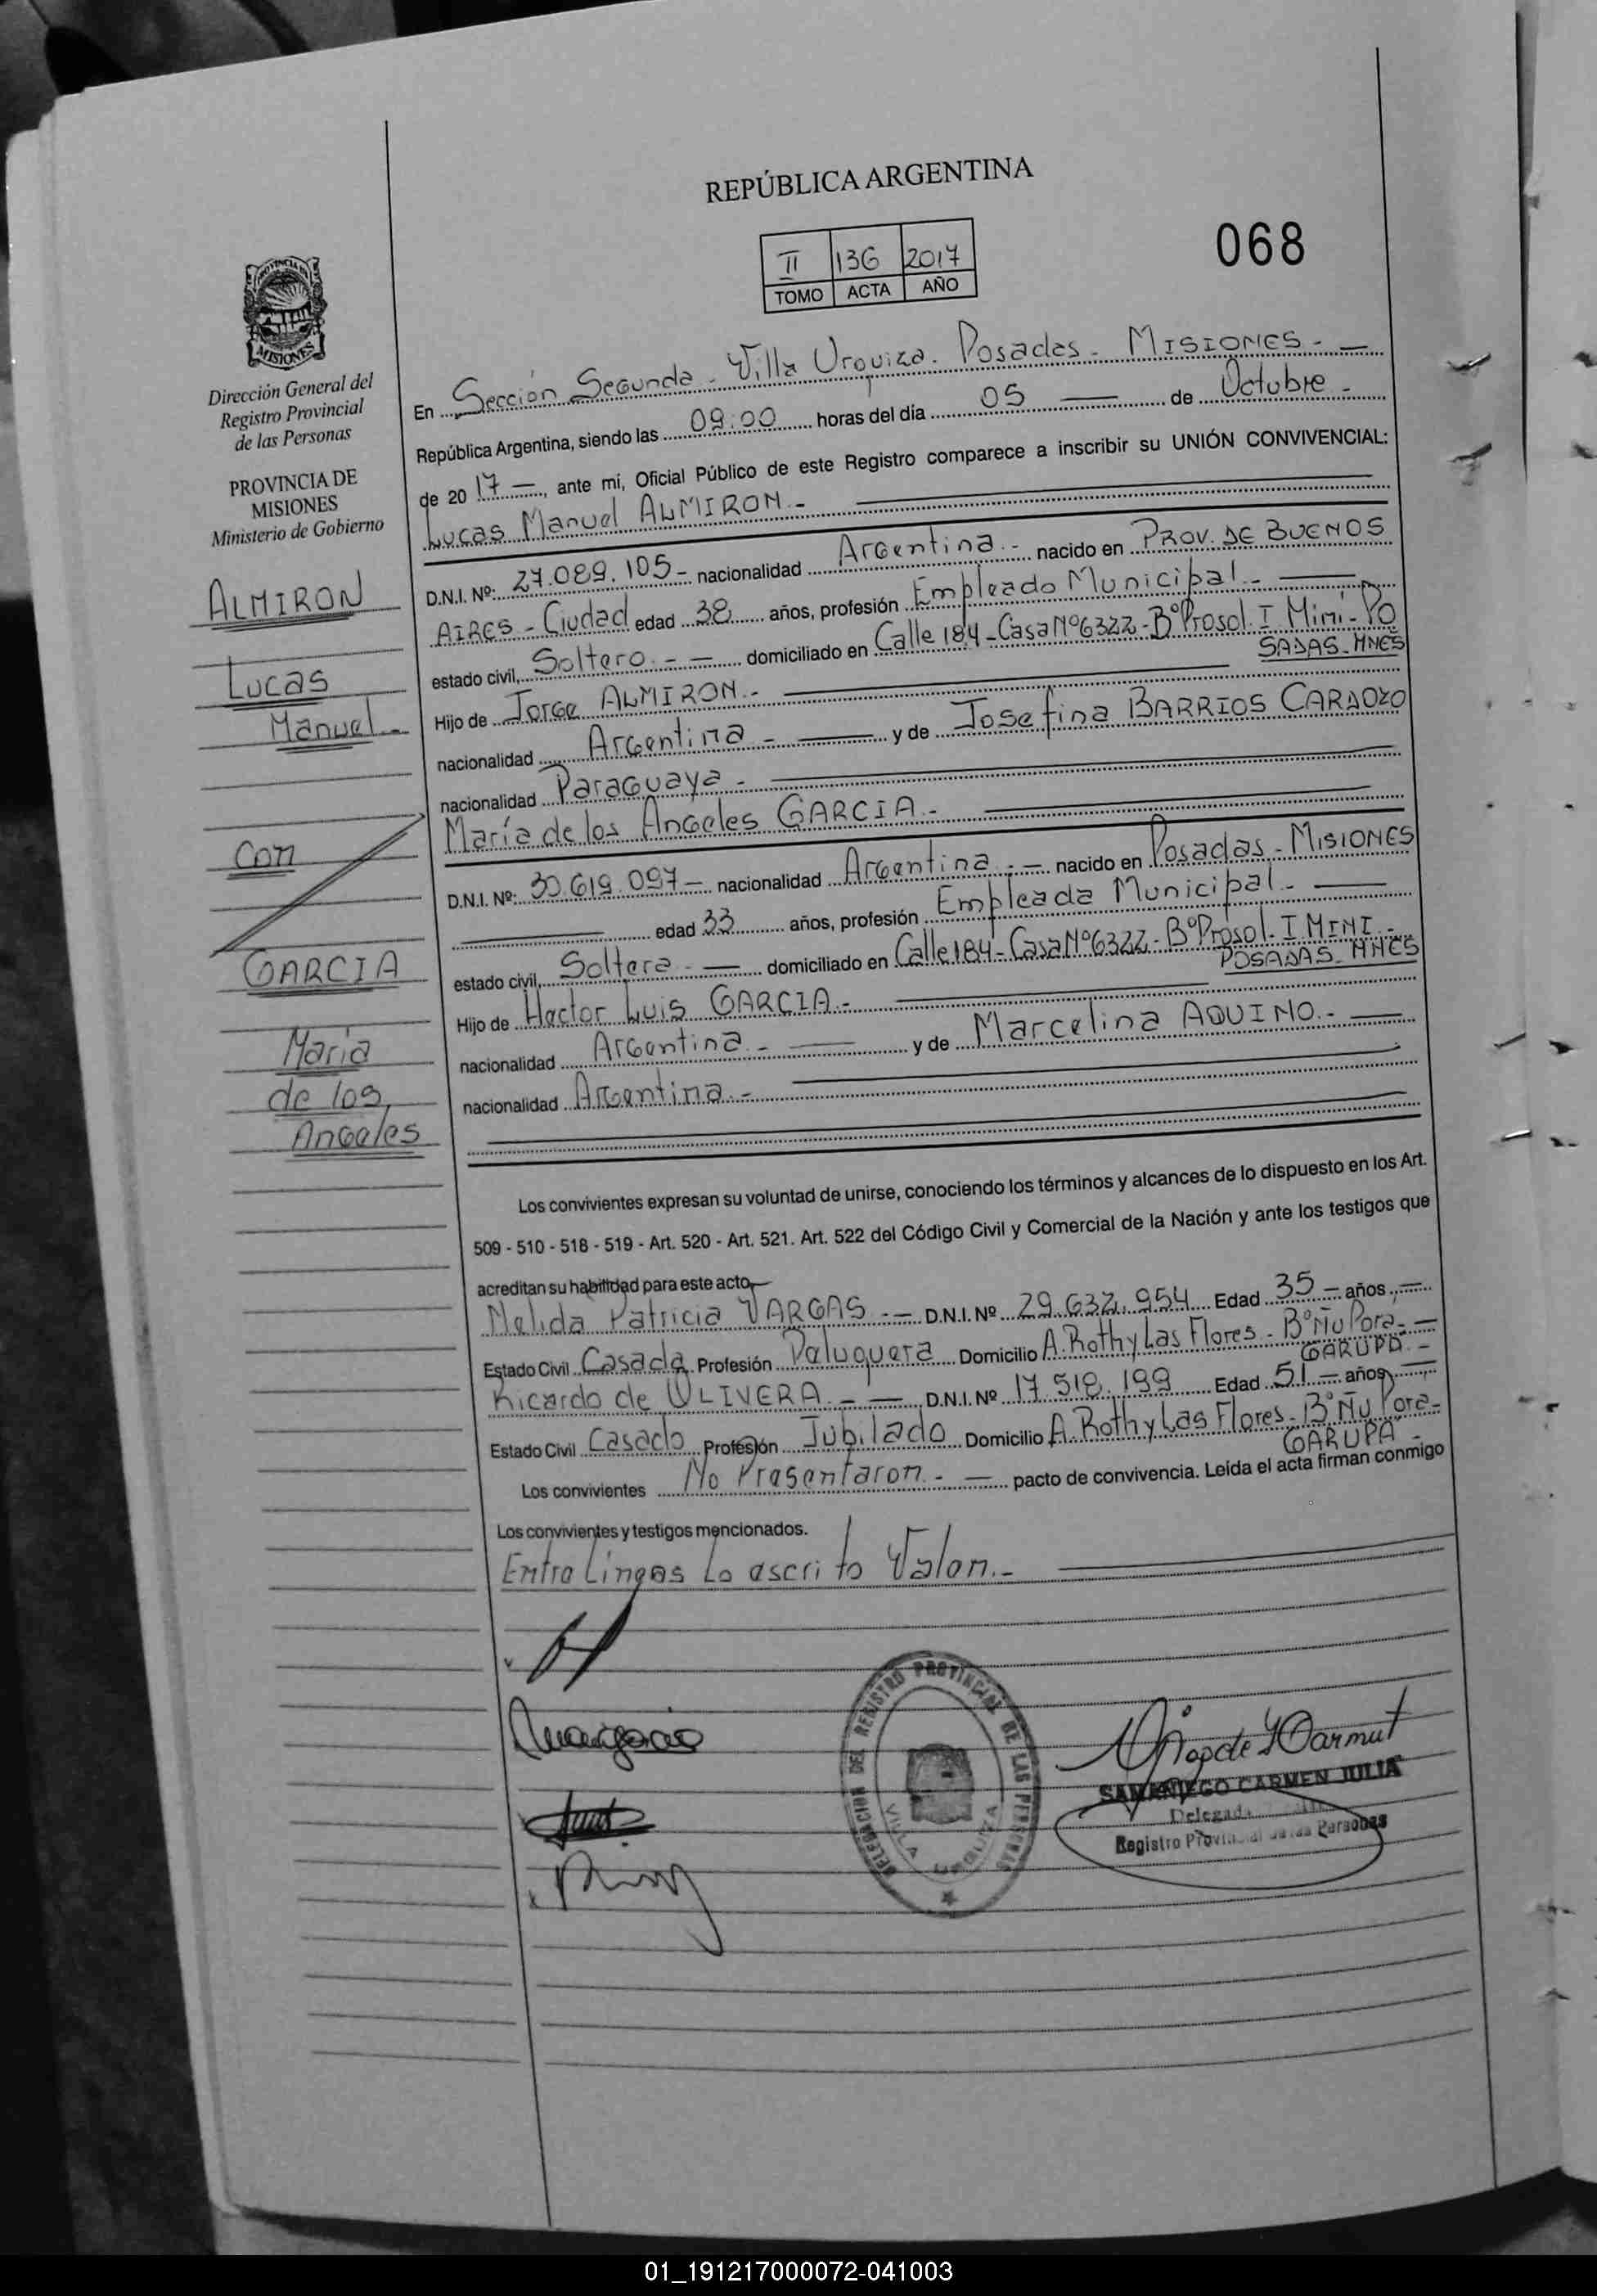 REPÚBLICA ARGENTINA
068
II 136 2017
TOMO ACTA AÑO
PROVINCIA DE
MISIONES
Dirección General del
Registro Provincial
de las Personas
PROVINCIA DE
MISIONES
Ministerio de Gobierno
ALMIRON
Lucas
Manuel.-
Con
GARCIA
María
de los
Angeles
En Sección Segunda - Villa Urquiza. Posadas - MISIONES.- —
República Argentina, siendo las 09:00 horas del día 05 — de Octubre -
de 20 17 —, ante mi, Oficial Público de este Registro comparece a inscribir su UNIÓN CONVIVENCIAL:
Lucas Manuel ALMIRON.-
D.N.I. Nº: 27.089.105- nacionalidad Argentina.- nacido en PROV. DE BUENOS
AIRES - Ciudad edad 38 años, profesión Empleado Municipal.- —
estado civil, Soltero.- — domiciliado en Calle 184-Casa Nº6322-BºProsol. I Mini-PO
SADAS-MNES
Hijo de Jorge ALMIRON.-
nacionalidad Argentina - — y de Josefina BARRIOS CARDOZO
nacionalidad Paraguaya -
María de los Angeles GARCIA.-
D.N.I. Nº: 30.619.097- nacionalidad Argentina.- — nacido en Posadas-MISIONES
— edad 33 años, profesión Empleada Municipal.- —
estado civil, Soltera.- — domiciliado en Calle 184-Casa Nº6322-BºProsol-I MINI.-
POSADAS-MNES
Hijo de Hector Luis GARCIA.-
nacionalidad Argentina.- — y de Marcelina AQUINO.- —
nacionalidad Argentina.-
Los convivientes expresan su voluntad de unirse, conociendo los términos y alcances de lo dispuesto en los Art.
509 - 510 - 518 - 519 - Art. 520 - Art. 521. Art. 522 del Código Civil y Comercial de la Nación y ante los testigos que
acreditan su habilidad para este acto,
Nelida Patricia VARGAS.- — D.N.I. Nº 29.632.954 Edad 35 — años,—
Estado Civil Casada Profesión Peluquera Domicilio A. Roth y Las Flores - Bº Ñu Pora-—
GARUPA.-
Ricardo de OLIVERA.- — D.N.I. Nº 17.518.199 Edad 51 — años,—
Estado Civil Casado Profesión Jubilado Domicilio A. Roth y Las Flores - Bº Ñu Pora-
GARUPA-
Los convivientes No Presentaron.- — pacto de convivencia. Leída el acta firman conmigo
Los convivientes y testigos mencionados.
Entre Lineas Lo escrito Valen.-
DELEGACION DEL REGISTRO PROVINCIAL DE LAS PERSONAS
VILLA URQUIZA
SAMANIEGO CARMEN JULIA
Delegada
Registro Provincial de las Personas
01_191217000072-041003